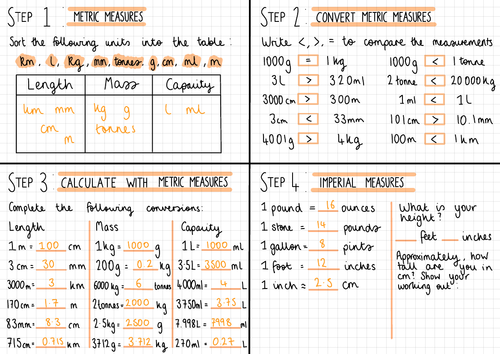 STEP 1 METRIC MEASURES
Sort the following units into the table:
km, l, kg, mm, tonnes, g, cm, ml, m
Length Mass Capacity
km mm kg g l ml
cm tonnes
m
STEP 2 CONVERT METRIC MEASURES
Write <, >, = to compare the measurements
1000g = 1kg 1000g < 1 tonne
3L > 320ml 2 tonne < 20000kg
3000cm > 300m 1ml < 1L
3cm < 33mm 101cm > 10.1mm
4001g > 4kg 100m < 1km
STEP 3 CALCULATE WITH METRIC MEASURES
Complete the following conversions:
Length Mass Capacity
1m = 100 cm 1kg = 1000 g 1L = 1000 ml
3cm = 30 mm 200g = 0.2 kg 3.5L = 3500 ml
3000m = 3 km 6000kg = 6 tonnes 4000ml = 4 L
170cm = 1.7 m 2tonnes = 2000 kg 3750ml = 3.75 L
83mm = 8.3 cm 2.5kg = 2500 g 7.998L = 7998 ml
715cm = 0.715 km 3712g = 3.712 kg 270ml = 0.27 L
STEP 4 IMPERIAL MEASURES
1 pound = 16 ounces
1 stone = 14 pounds
1 gallon = 8 pints
1 foot = 12 inches
1 inch = 2.5 cm
What is your
height?
feet inches
Approximately, how
tall are you in
cm? Show your
working out.